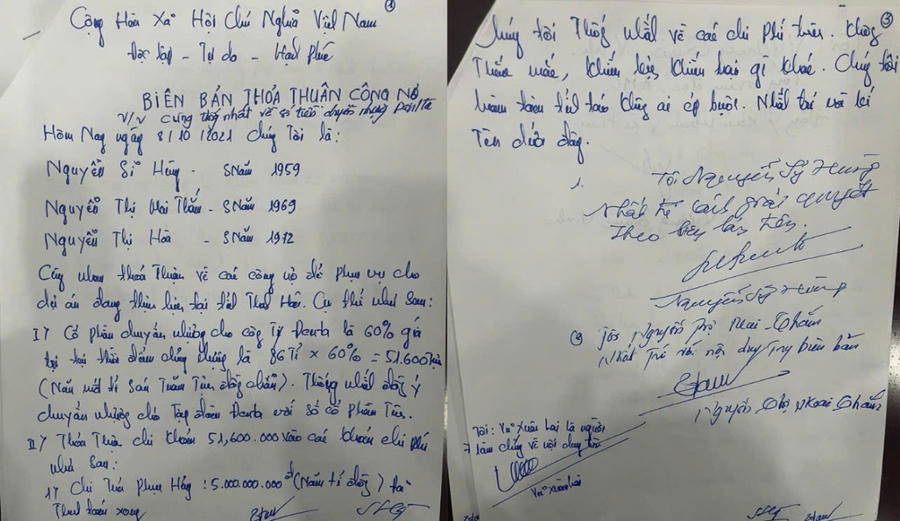 ①
Cộng Hòa Xã Hội Chủ Nghĩa Việt Nam
Độc lập - Tự do - Hạnh Phúc
BIÊN BẢN THỎA THUẬN CÔNG NỢ
V/v cùng thống nhất về số tiền chuyển nhượng
Hôm Nay ngày 8/10/2021 chúng Tôi là:
Nguyễn Sĩ Hùng - SNăm 1959
Nguyễn Thị Mai Thắm - SNăm 1969
Nguyễn Thị Hòa - SNăm 1972
Cùng nhau thoả Thuận về các công nợ để phục vụ cho
dự án đang thực hiện tại tỉnh Thanh Hóa. Cụ thể như Sau:
I) Cổ phần chuyển nhượng cho công Ty là 60% giá
tại thời điểm chúng là 86 Tỉ x 60% = 51.600
(Năm mốt tỉ Sáu Trăm Triệu đồng chẵn). Thống nhất đồng ý
chuyển nhượng cho Tập đoàn với số cổ phần Trên.
II) Thỏa Thuận chi khoản 51,600.000 vào các khoản chi phí
như Sau:
1) Chi Trả Hùng: 5.000.000.000đ (Năm tỉ đồng) đã
Thanh toán xong
③
Chúng tôi Thống nhất về các chi phí trên. Không
Thắc mắc, khiếu kiện, khiếu nại gì khác. Chúng tôi
hoàn toàn tỉnh táo không ai ép buộc. Nhất trí và kí
Tên dưới đây.
1. Tôi Nguyễn Sỹ Hùng
Nhất trí cách giải quyết
theo biên bản trên.
Nguyễn Sỹ Hùng
② Tôi Nguyễn Thị Mai Thắm
Nhất Trí với nội dung trong biên bản
Nguyễn Thị Mai Thắm
Tôi: Vũ Xuân Hai là người
làm chứng về nội dung trên
Vũ Xuân Hai